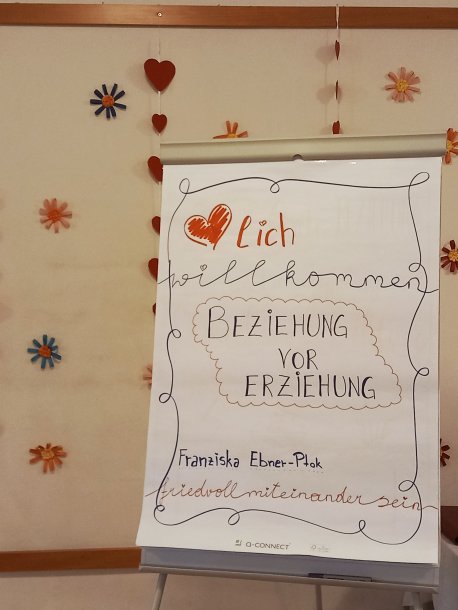 ❤lich
willkommen
BEZIEHUNG
VOR
ERZIEHUNG
Franziska Ebner-Ptok
friedvoll miteinander sein
Q-CONNECT